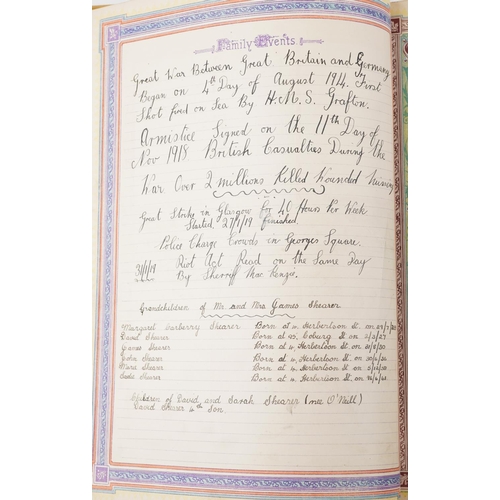 Family Events.
Great War Between Great Britain and Germany
Began on 4th Day of August 1914. First
Shot fired on Sea By H.M.S. Grafton.
Armistice Signed on the 11th Day of
Nov 1918 British Casualties During the
War Over 2 millions Killed Wounded Missing
Great Strike in Glasgow for 40 Hours Per Week
Started 27/1/19 finished
Police Charge Crowds in Georges Square.
31/1/19 Riot Act Read on the Same Day
By Sherriff MacKenzie.
Grandchildren of Mr. and Mrs James Shearer
Margaret Shearer Born at 4. Herbertson St. on
David Shearer Born at Coburg St. on 2/2/27
James Shearer Born at 4. Herbertson St. on
John Shearer Born at 4. Herbertson St. on
Shearer Born at 4. Herbertson St. on
Shearer Born at 4. Herbertson St. on
Children of David and Sarah Shearer (nee O'Neill)
David Shearer 4th Son